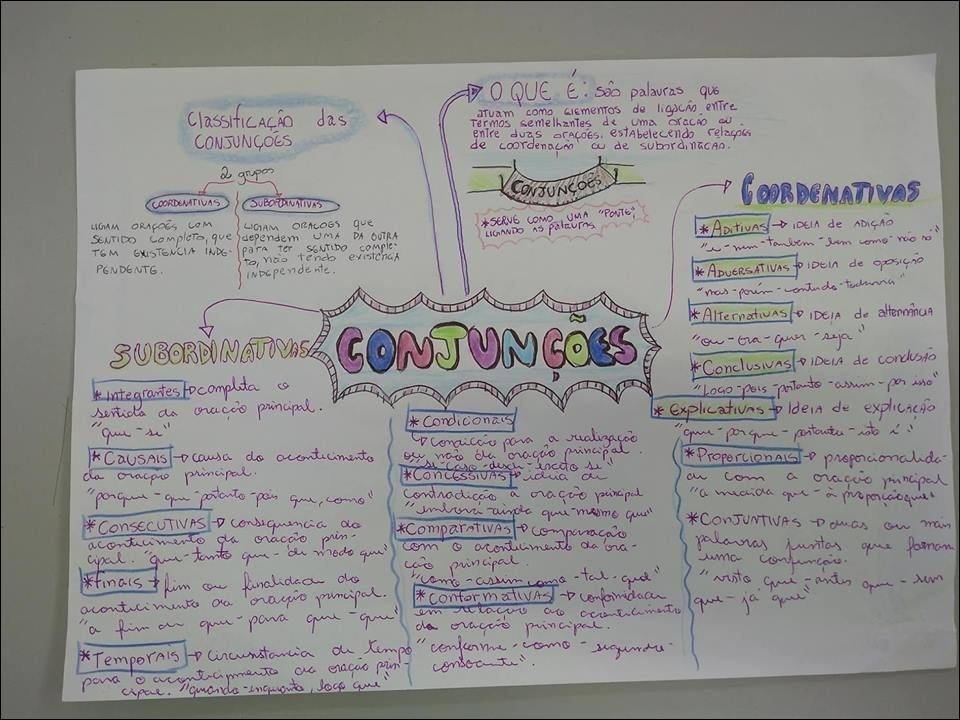 Classificação das
CONJUNÇÕES
2 grupos
COORDENATIVAS
LIGAM ORAÇÕES COM
SENTIDO COMPLETO, QUE
TEM EXISTENCIA INDE-
PENDENTE.
SUBORDINATIVAS
LIGAM ORACOES QUE
dependem UMA DA OUTRA
para TER SENTIDO comple-
to, não tendo existencia
independente.
O QUE É: São palavras que
atuam como elementos de ligação entre
termos semelhantes de uma oração ou
entre duas orações, estabelecendo relações
de coordenação ou de subordinacao.
CONJUNÇÕES
*SERVE COMO UMA "PONTE",
LIGANDO AS PALAVRAS
CONJUNÇÕES
COORDENATIVAS
*Aditivas → IDEIA DE ADIÇÃO
"e-nem-tambem-bem como-não só"
*Adversativas → IDEIA de oposição
"mas-porém-contudo-todavia"
*Alternativas → IDEIA de alternância
"ou-ora-quer-seja"
*Conclusivas → IDEIA DE CONCLUSÃO
"Logo-pois-portanto-assim-por isso"
*Explicativas → Ideia de explicação
"que-porque-portanto-isto é:"
SUBORDINATIVAS
*Integrantes → completa o
sentido da oração principal.
"que-se"
*CAUSAIS → causa do acontecimento
da oração principal.
"porque-que-portanto-pois que, como"
*CONSECUTIVAS → consequencia do
acontecimento da oração prin-
cipal. "que-tanto que-de modo que"
*Finais → fim ou finalidade do
acontecimento da oração principal.
"a fim de que-para que-que"
*Temporais → circunstancia de tempo
para o acontecimento da oração prin-
cipal. "quando-enquanto, logo que"
*Condicionais
→ condição para a realização
ou não da oração principal.
"se-caso-desde-exceto se"
*CONCESSIVAS → ideia de
contradição a oração principal
"embora-ainda que-mesmo que"
*Comparativas → comparação
com o acontecimento da ora-
cão principal.
"como-assim como-tal-qual"
*Conformativas → conformidade
em relação ao acontecimento
da oração principal.
"conforme-como-segundo-
consoante".
*Proporcionais → proporcionalida-
de com a oração principal
"a medida que-à proporção que"
*CONJUNTIVAS → duas ou mais
palavras juntas que formam
uma conjunção.
"visto que-antes que-sem
que-já que"